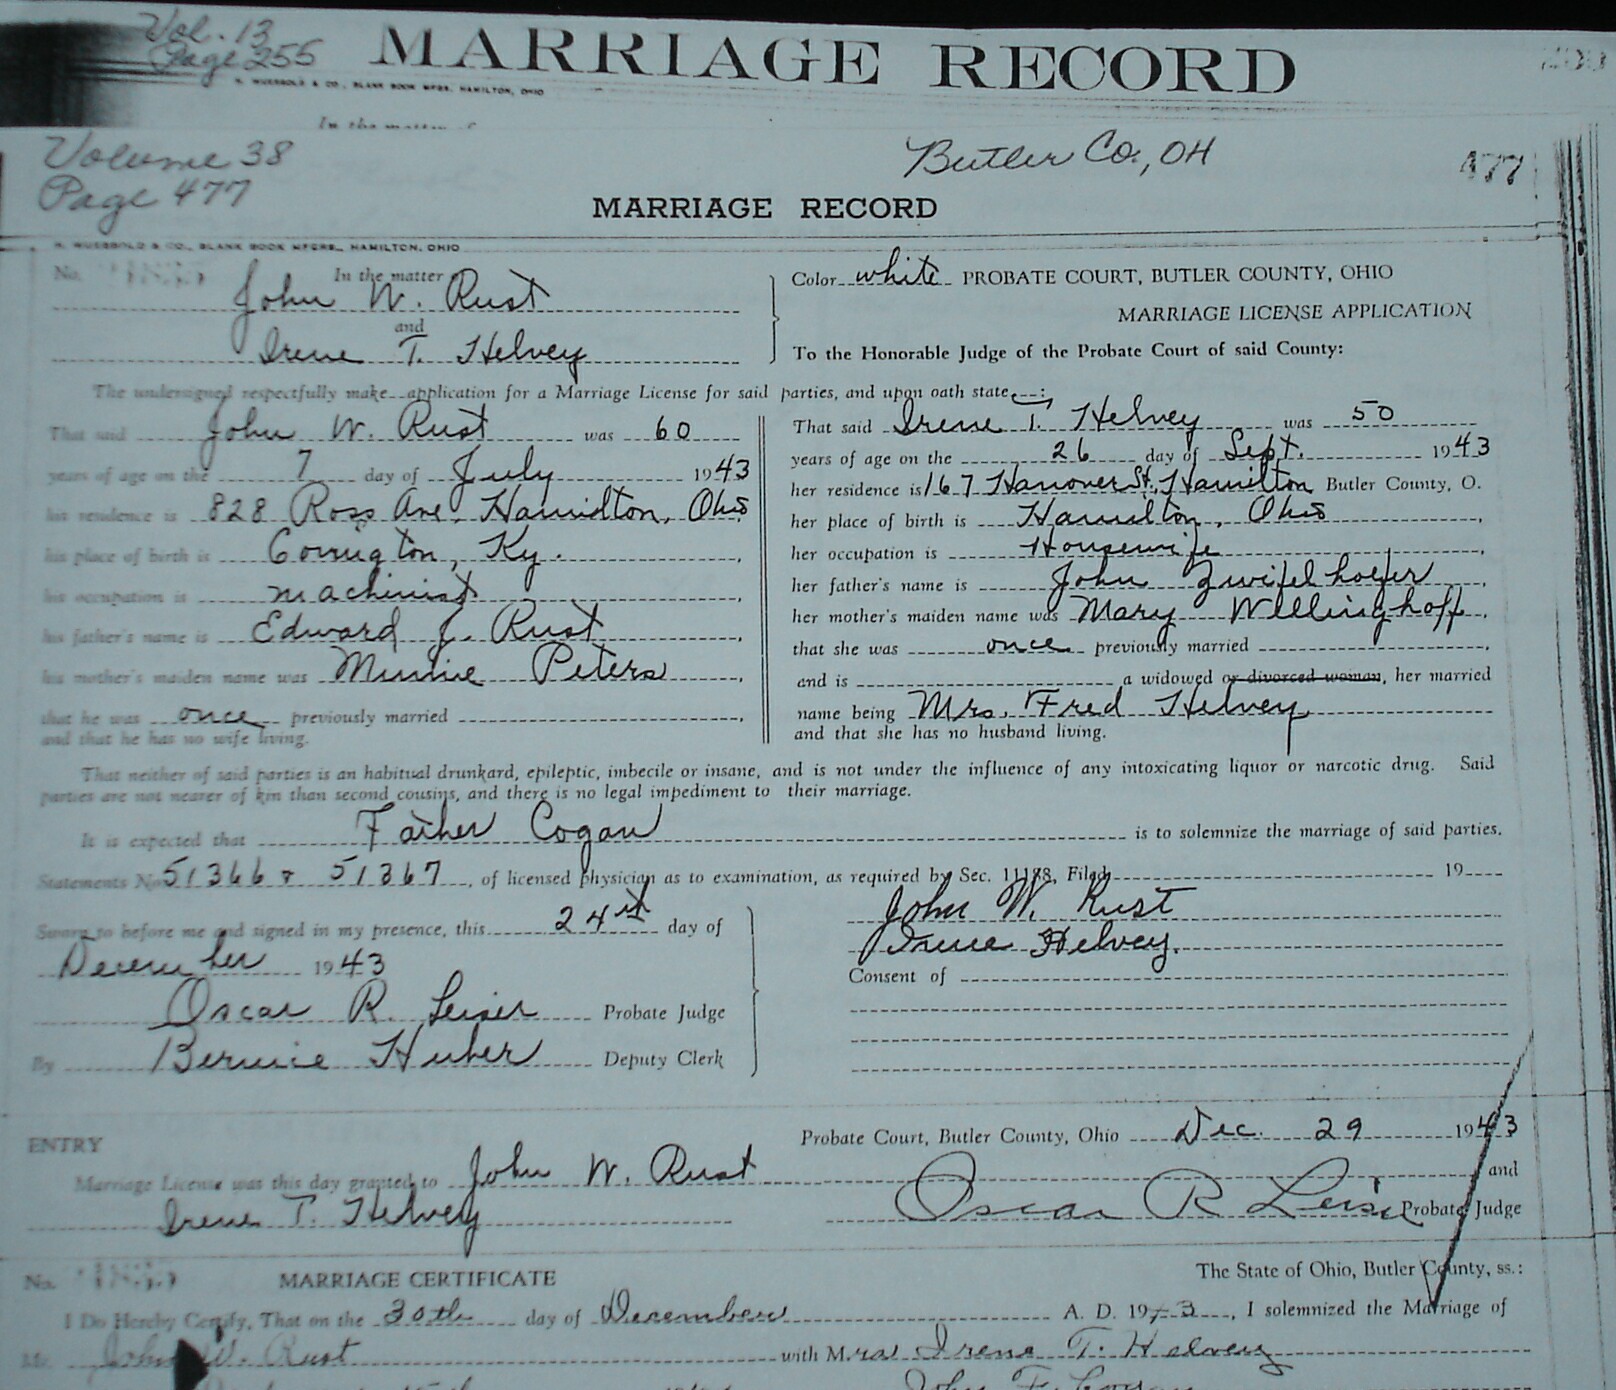 Vol. 13
Page 255
MARRIAGE RECORD
H. WUESBOLD & CO., BLANK BOOK MFGRS. HAMILTON, OHIO
In the matter of
Volume 38
Page 477
Butler Co., OH
477
MARRIAGE RECORD
H. WUESBOLD & CO., BLANK BOOK MFGRS., HAMILTON, OHIO
No.
In the matter
John W. Rust
and
Irene T. Helvey
Color white PROBATE COURT, BUTLER COUNTY, OHIO
MARRIAGE LICENSE APPLICATION
To the Honorable Judge of the Probate Court of said County:
The undersigned respectfully make application for a Marriage License for said parties, and upon oath state:
That said John W. Rust was 60
years of age on the 7 day of July 1943
his residence is 828 Ross Ave. Hamilton, Ohio
his place of birth is Covington, Ky.
his occupation is machinist
his father's name is Edward J. Rust
his mother's maiden name was Minnie Peters
that he was once previously married
and that he has no wife living.
That said Irene T. Helvey was 50
years of age on the 26 day of Sept. 1943
her residence is 167 Hanover St., Hamilton Butler County, O.
her place of birth is Hamilton, Ohio
her occupation is Housewife
her father's name is John Zwifelhoefer
her mother's maiden name was Mary Wellinghoff
that she was once previously married
and is a widowed or divorced woman, her married
name being Mrs. Fred Helvey
and that she has no husband living.
That neither of said parties is an habitual drunkard, epileptic, imbecile or insane, and is not under the influence of any intoxicating liquor or narcotic drug. Said
parties are not nearer of kin than second cousins, and there is no legal impediment to their marriage.
It is expected that Father Cogan is to solemnize the marriage of said parties.
Statements No. 51366 & 51367, of licensed physician as to examination, as required by Sec. 11188, Filed 19
Sworn to before me and signed in my presence, this 24th day of
December 1943
Oscar R. Leiser Probate Judge
By Bernice Huber Deputy Clerk
John W. Rust
Irene Helvey.
Consent of
ENTRY
Probate Court, Butler County, Ohio Dec. 29 1943
Marriage License was this day granted to John W. Rust and
Irene T. Helvey
Oscar R Leiser Probate Judge
No.
MARRIAGE CERTIFICATE
The State of Ohio, Butler County, ss.:
I Do Hereby Certify, That on the 30th day of December A. D. 1943, I solemnized the Marriage of
Mr. John W. Rust with Mrs Irene T. Helvey
John F. Cogan